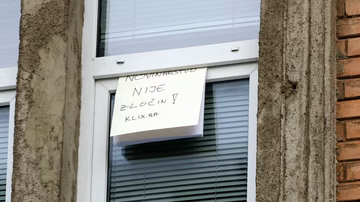 NOVINARSTVO
NIJE
ZLOČIN!
KLIX.BA